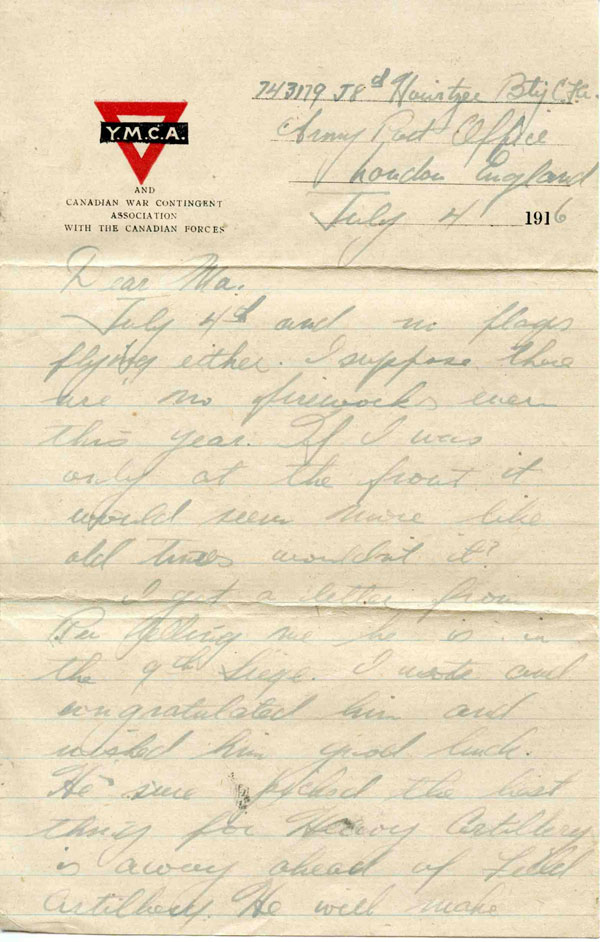 Y.M.C.A.
AND
CANADIAN WAR CONTINGENT
ASSOCIATION
WITH THE CANADIAN FORCES
Howitzer Bty C.F.A.
Army Post Office
London England
July 4 1916
Dear Ma.
July 4th and no flags
flying either. I suppose there
are no fireworks even
this year. If I was
only at the front it
would seem more like
old times wouldnt it?
I got a letter from
telling me he is in
the 9th Siege. I wrote and
congratulated him and
wished him good luck.
He sure picked the best
thing for Heavy Artillery
is away ahead of Field
Artillery. He will make